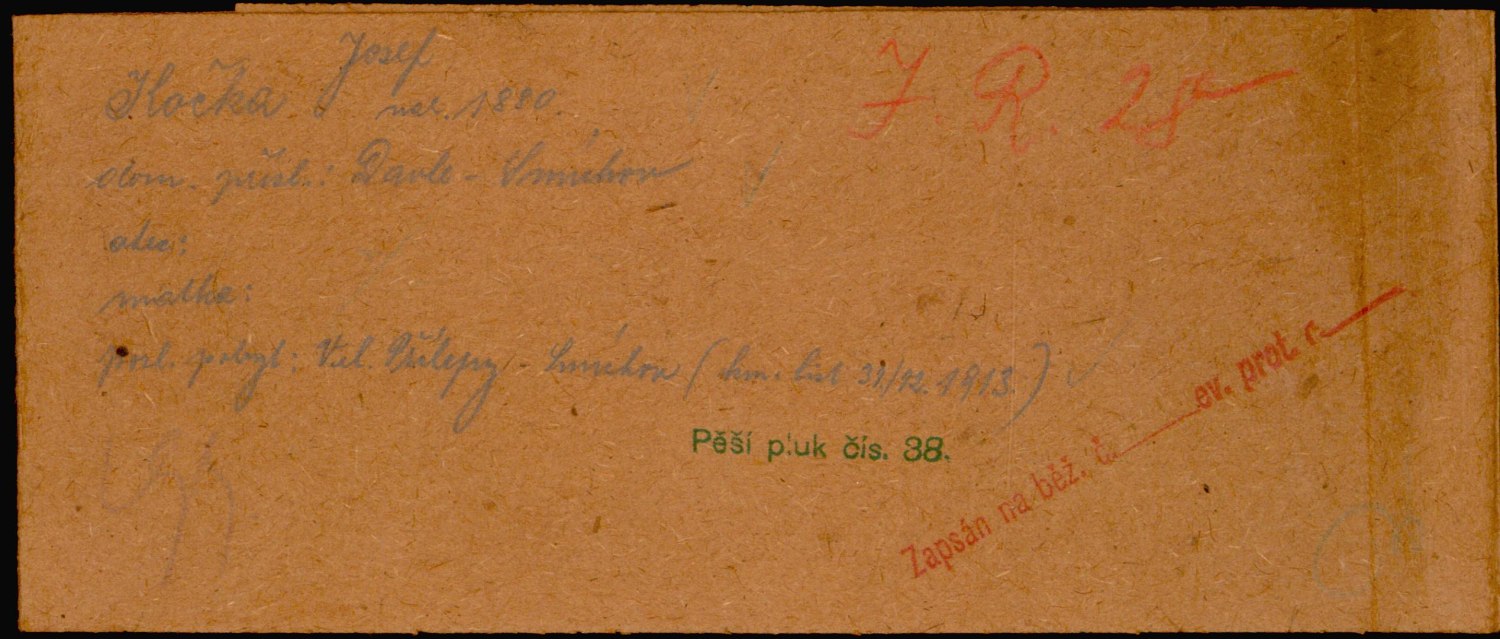 Josef
Kočka nar. 1880.
J. R. 28
dom. přísl.: Davle - Smíchov
otec:
matka:
posl. pobyt: Vel. Přílepy - Smíchov ( km. list 31/12. 1913. )
Pěší pluk čís. 38.
Zapsán na běž. č. ev. prot. r.